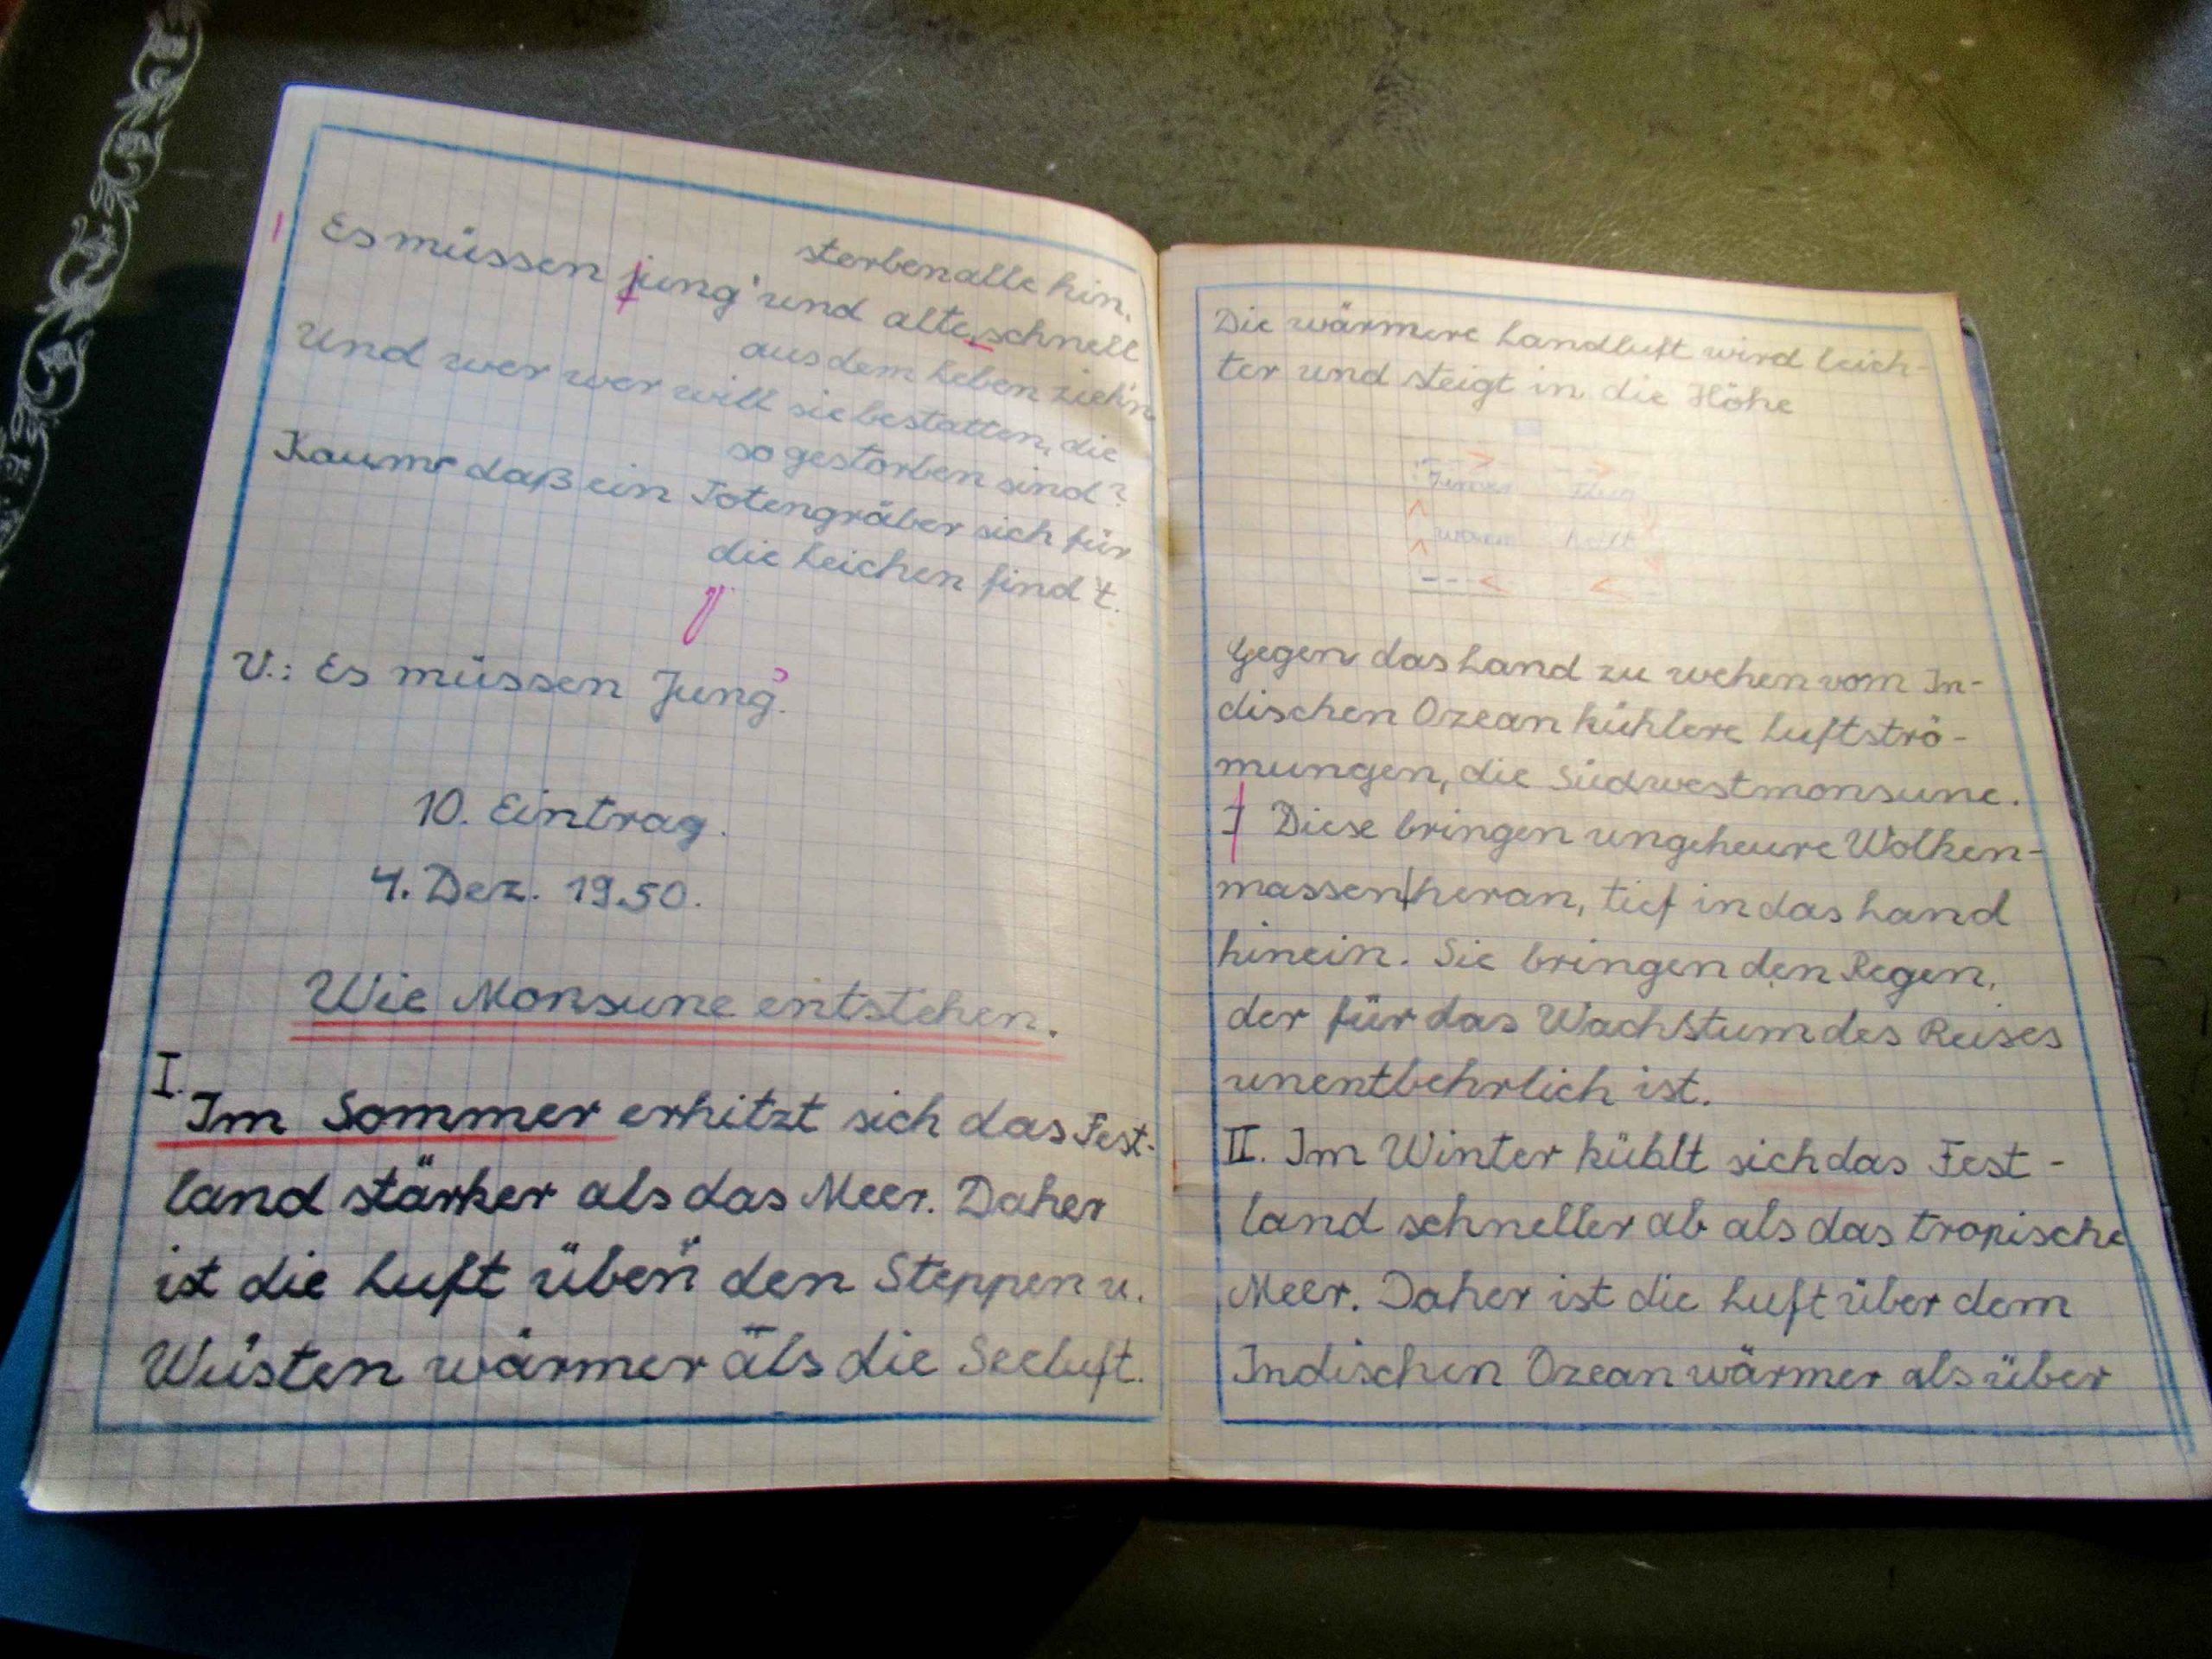 sterben alle hin.
Es müssen jung' und alte schnell
aus dem Leben ziehn
Und wer wer will sie bestatten, die
so gestorben sind?
Kaum daß ein Totengräber sich für
die Leichen find't.
V.: Es müssen Jung'.
10. Eintrag.
4. Dez. 1950.
Wie Monsune entstehen.
I.
Im Sommer erhitzt sich das Fest-
land stärker als das Meer. Daher
ist die Luft über den Steppen u.
Wüsten wärmer als die Seeluft.
Die wärmere Landluft wird leich-
ter und steigt in die Höhe
warm kalt
Gegen das Land zu wehen vom In-
dischen Ozean kühlere Luftströ-
mungen, die Südwestmonsune.
I Diese bringen ungeheure Wolken-
massen heran, tief in das Land
hinein. Sie bringen den Regen,
der für das Wachstum des Reises
unentbehrlich ist.
II. Im Winter kühlt sich das Fest-
land schneller ab als das tropische
Meer. Daher ist die Luft über dem
Indischen Ozean wärmer als über